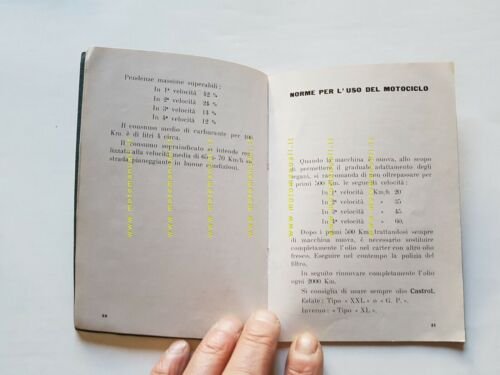 Pendenze massime superabili:
In 1ª velocità 42 %
In 2ª velocità 24 %
In 3ª velocità 14 %
In 4ª velocità 12 %
Il consumo medio di carburante per 100
Km. è di litri 4 circa.
Il consumo sopraindicato si intende rea-
lizzato alla velocità media di 65 ÷ 70 Km/h su
strada pianeggiante in buone condizioni.
NORME PER L'USO DEL MOTOCICLO
Quando la macchina è nuova, allo scopo
di permettere il graduale adattamento degli
organi, si raccomanda di non oltrepassare per
i primi 500 Km. le seguenti velocità:
In 1ª velocità Km/h 20
In 2ª velocità » 35
In 3ª velocità » 45
In 4ª velocità » 60.
Dopo i primi 500 Km. trattandosi sempre
di macchina nuova, è necessario sostituire
completamente l'olio nel carter con altro olio
fresco. Eseguire nel contempo la pulizia del
filtro.
In seguito rinnovare completamente l'olio
ogni 2000 Km.
Si consiglia di usare sempre olio Castrol.
Estate: Tipo « XXL » o « G. P. ».
Inverno: « Tipo « XL ».
www.motomanuali.it
www.motomanuali.it
www.motomanuali.it
www.motomanuali.it
www.motomanuali.it
www.motomanuali.it
www.motomanuali.it
www.motomanuali.it